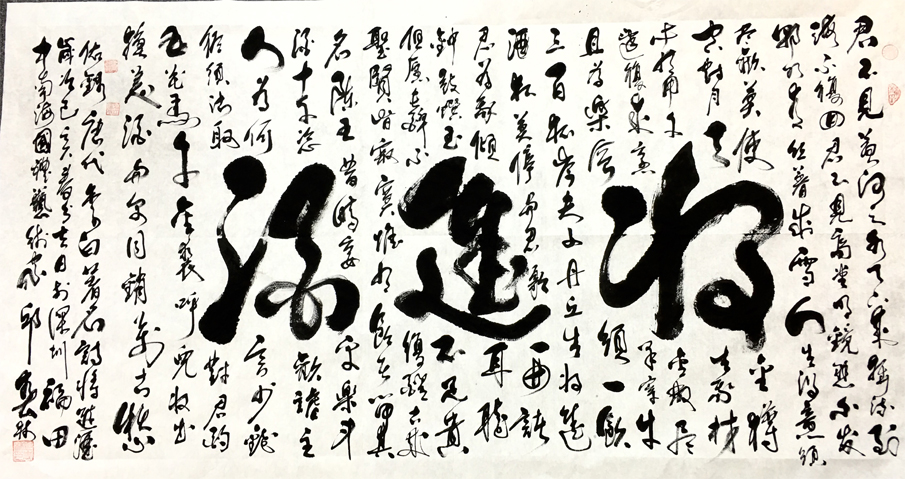 將進酒
君不見黃河之水天上來奔流到
海不復回君不見高堂明鏡悲白髮
朝如青絲暮成雪人生得意須
盡歡莫使金樽
空對月天生我材
必有用千金散盡
還復來烹羊宰牛
且為樂會須一飲
三百杯岑夫子丹丘生將進
酒杯莫停與君歌一曲請
君為我傾耳聽
鐘鼓饌玉不足貴
但願長醉不復醒古來
聖賢皆寂寞惟有飲者留其
名陳王昔時宴平樂斗
酒十千恣歡謔主
人為何言少錢
徑須沽取對君酌
五花馬千金裘呼兒將出
換美酒與爾同銷萬古愁
錄唐代李白著名詩將進酒
歲次己亥春月吉日於深圳福田
中南海國禮藝術家邱春林